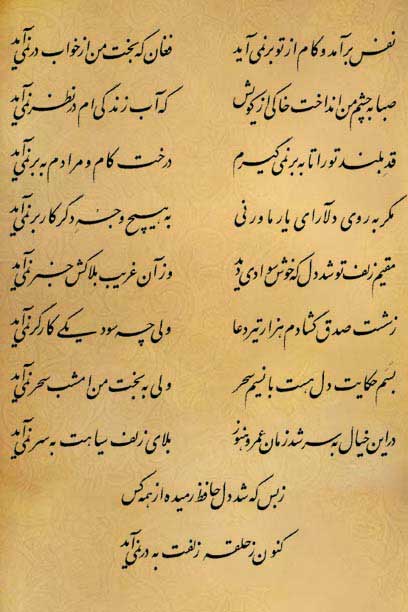 نفس برآمد و کام از تو بر نمی آید فغان که بخت من از خواب در نمی آید
صبا به چشم من انداخت خاکی از کویش که آب زندگی ام در نظر نمی آید
قد بلند تو را تا به بر نمی گیرم درخت کام و مرادم به بر نمی آید
مگر به روی دلآرای یار ما ورنی به هیچ وجه دگر کار بر نمی آید
مقیم زلف تو شد دل که خوش سوادی دید وز آن غریب بلاکش خبر نمی آید
ز شست صدق گشادم هزار تیر دعا ولی چه سود یکی کارگر نمی آید
بسم حکایت دل هست با نسیم سحر ولی به بخت من امشب سحر نمی آید
در این خیال به سر شد زمان عمر و هنوز بلای زلف سیاهت به سر نمی آید
ز بس که شد دل حافظ رمیده از همه کس
کنون ز حلقه زلفت به در نمی آید